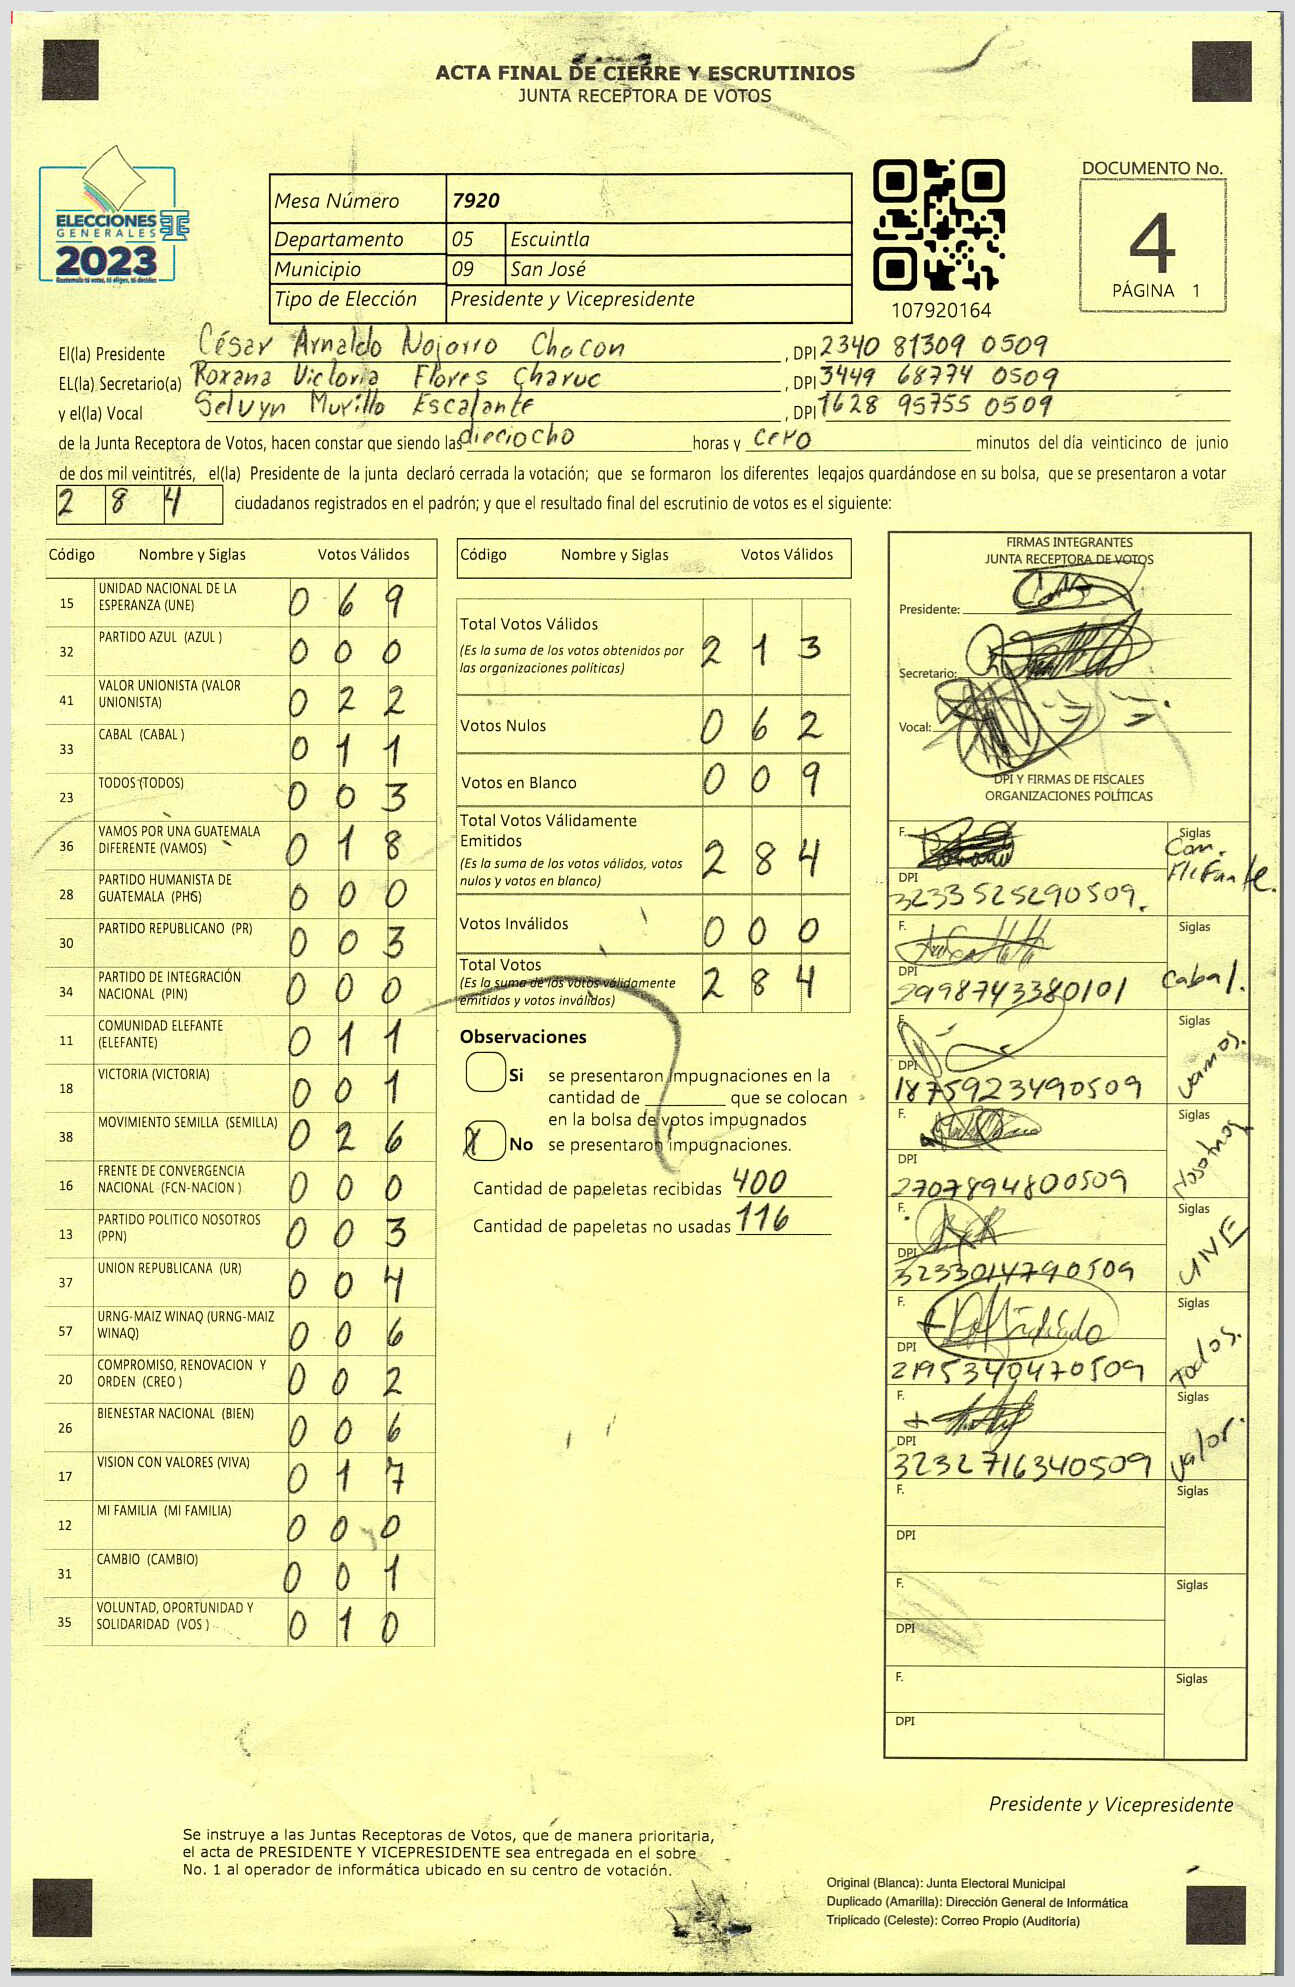 ACTA FINAL DE CIERRE Y ESCRUTINIOS
JUNTA RECEPTORA DE VOTOS
ELECCIONES
GENERALES
2023
Guatemala tú votas, tú eliges, tú decides
Mesa Número 7920
Departamento 05 Escuintla
Municipio 09 San José
Tipo de Elección Presidente y Vicepresidente
107920164
DOCUMENTO No.
4
PÁGINA 1
El(la) Presidente César Arnaldo Najarro Chacon , DPI 2340 81309 0509
EL(la) Secretario(a) Roxana Victoria Flores Charuc , DPI 3449 68774 0509
y el(la) Vocal Selvyn Murillo Escalante , DPI 1628 95755 0509
de la Junta Receptora de Votos, hacen constar que siendo las dieciocho horas y cero minutos del día veinticinco de junio
de dos mil veintitrés, el(la) Presidente de la junta declaró cerrada la votación; que se formaron los diferentes legajos guardándose en su bolsa, que se presentaron a votar
2 8 4 ciudadanos registrados en el padrón; y que el resultado final del escrutinio de votos es el siguiente:
Código Nombre y Siglas Votos Válidos
15 UNIDAD NACIONAL DE LA ESPERANZA (UNE) 0 6 9
32 PARTIDO AZUL (AZUL ) 0 0 0
41 VALOR UNIONISTA (VALOR UNIONISTA) 0 2 2
33 CABAL (CABAL ) 0 1 1
23 TODOS (TODOS) 0 0 3
36 VAMOS POR UNA GUATEMALA DIFERENTE (VAMOS) 0 1 8
28 PARTIDO HUMANISTA DE GUATEMALA (PHG) 0 0 0
30 PARTIDO REPUBLICANO (PR) 0 0 3
34 PARTIDO DE INTEGRACIÓN NACIONAL (PIN) 0 0 0
11 COMUNIDAD ELEFANTE (ELEFANTE) 0 1 1
18 VICTORIA (VICTORIA) 0 0 1
38 MOVIMIENTO SEMILLA (SEMILLA) 0 2 6
16 FRENTE DE CONVERGENCIA NACIONAL (FCN-NACION ) 0 0 0
13 PARTIDO POLITICO NOSOTROS (PPN) 0 0 3
37 UNION REPUBLICANA (UR) 0 0 4
57 URNG-MAIZ WINAQ (URNG-MAIZ WINAQ) 0 0 6
20 COMPROMISO, RENOVACION Y ORDEN (CREO ) 0 0 2
26 BIENESTAR NACIONAL (BIEN) 0 0 6
17 VISION CON VALORES (VIVA) 0 1 7
12 MI FAMILIA (MI FAMILIA) 0 0 0
31 CAMBIO (CAMBIO) 0 0 1
35 VOLUNTAD, OPORTUNIDAD Y SOLIDARIDAD (VOS ) 0 1 0
Código Nombre y Siglas Votos Válidos
Total Votos Válidos 2 1 3
(Es la suma de los votos obtenidos por
las organizaciones políticas)
Votos Nulos 0 6 2
Votos en Blanco 0 0 9
Total Votos Válidamente
Emitidos 2 8 4
(Es la suma de los votos válidos, votos
nulos y votos en blanco)
Votos Inválidos 0 0 0
Total Votos 2 8 4
(Es la suma de los votos válidamente
emitidos y votos inválidos)
Observaciones
Si se presentaron impugnaciones en la
cantidad de ________ que se colocan
en la bolsa de votos impugnados
X No se presentaron impugnaciones.
Cantidad de papeletas recibidas 400
Cantidad de papeletas no usadas 116
FIRMAS INTEGRANTES
JUNTA RECEPTORA DE VOTOS
Presidente:
Secretario:
Vocal:
DPI Y FIRMAS DE FISCALES
ORGANIZACIONES POLÍTICAS
F. Siglas
DPI 3233525290509.
F. Siglas Cabal.
DPI 2998743380101
F. Siglas Vamos.
DPI 1875923490509
F. Siglas Nosotros
DPI 2707894800509
F. Siglas UNE
DPI 3233014790509
F. Siglas Todos.
DPI 2195340470509
F. Siglas Valor.
DPI 3232716340509
F. Siglas
DPI
F. Siglas
DPI
F. Siglas
DPI
Presidente y Vicepresidente
Se instruye a las Juntas Receptoras de Votos, que de manera prioritaria,
el acta de PRESIDENTE Y VICEPRESIDENTE sea entregada en el sobre
No. 1 al operador de informática ubicado en su centro de votación.
Original (Blanca): Junta Electoral Municipal
Duplicado (Amarilla): Dirección General de Informática
Triplicado (Celeste): Correo Propio (Auditoría)